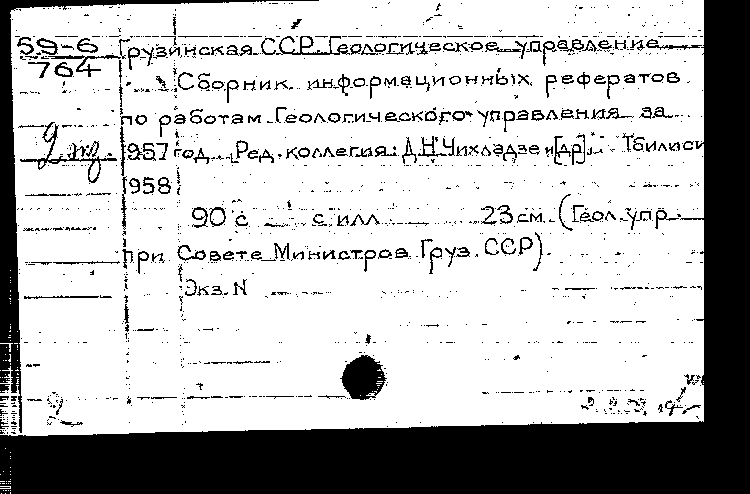 59-6 Грузинская ССР. Геологическое управление
764
Сборник информационных рефератов
по работам Геологического управления за
2 экз. 1957 год. Ред. коллегия: Д.Н. Чихладзе и [др]. Тбилиси
1958
90 с с илл 23 см. (Геол. упр.
при Совете Министров Груз. ССР).
Экз. N
2